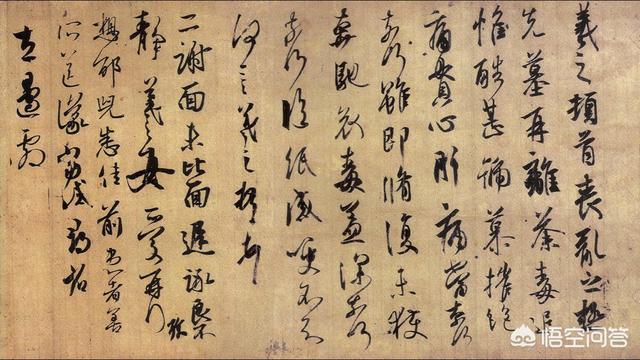 羲之頓首喪亂之極
先墓再離荼毒追
惟酷甚號慕摧絕
痛貫心肝痛當奈何
奈何雖即脩復未獲
奔馳哀毒益深奈何
奈何臨紙感哽不知
何言羲之頓首
二謝面未比面遲詠良不
靜羲之女愛再拜
想邰兒悉佳前患者善
所送議當試尋省
左邊劇
悟空问答